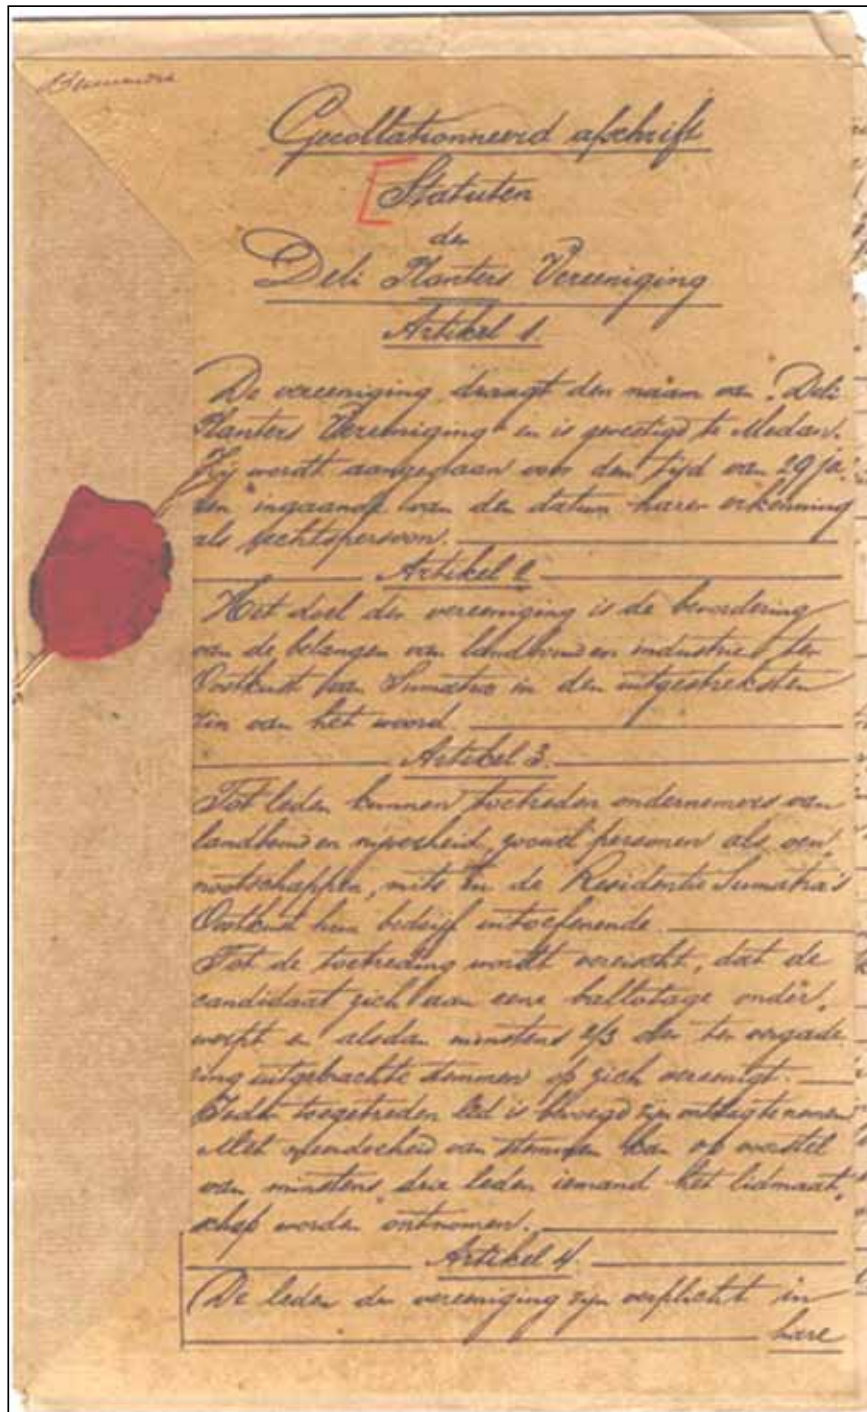 Gecollationneerd afschrift
Statuten
der
Deli Planters Vereeniging
Artikel 1.
De vereeniging draagt den naam van "Deli
Planters Vereeniging" en is gevestigd te Medan.
Zij wordt aangegaan voor den tijd van 29 ja-
ren ingaande van den datum harer erkenning
als rechtspersoon.
Artikel 2
Het doel der vereeniging is de bevordering
van de belangen van landbouw en industrie ter
Oostkust van Sumatra in den uitgestreksten
zin van het woord.
Artikel 3.
Tot leden kunnen toetreden ondernemers van
landbouw en nijverheid, zoowel personen als ven-
nootschappen, mits in de Residentie Sumatra's
Oostkust hun bedrijf uitoefenende.
Tot de toetreding wordt vereischt, dat de
candidaat zich aan eene ballotage onder-
werpt en alsdan minstens 2/3 der ter vergade
ring uitgebrachte stemmen op zich vereenigt.
Ieder toegetreden lid is bevoegd zijn ontslag te nemen
Met meerderheid van stemmen kan op voorstel
van minstens drie leden iemand het lidmaat-
schap worden ontnomen.
Artikel 4.
De leden der vereeniging zijn verplicht in
hare